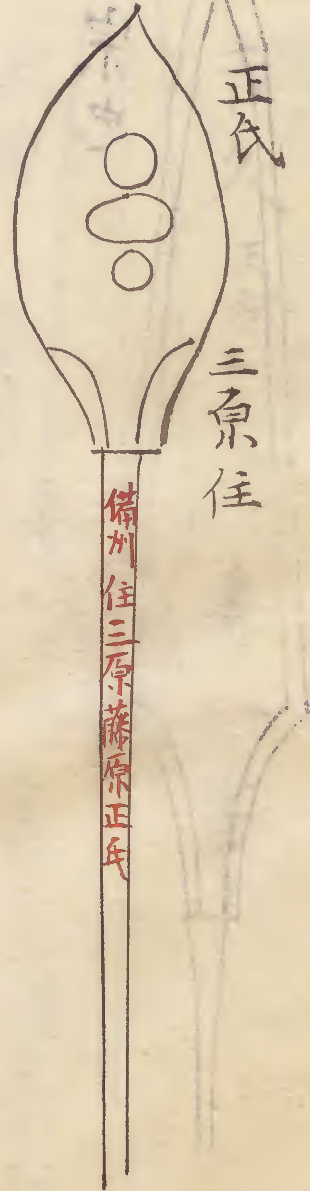 正氏
三原住
備州住三原藤原正氏